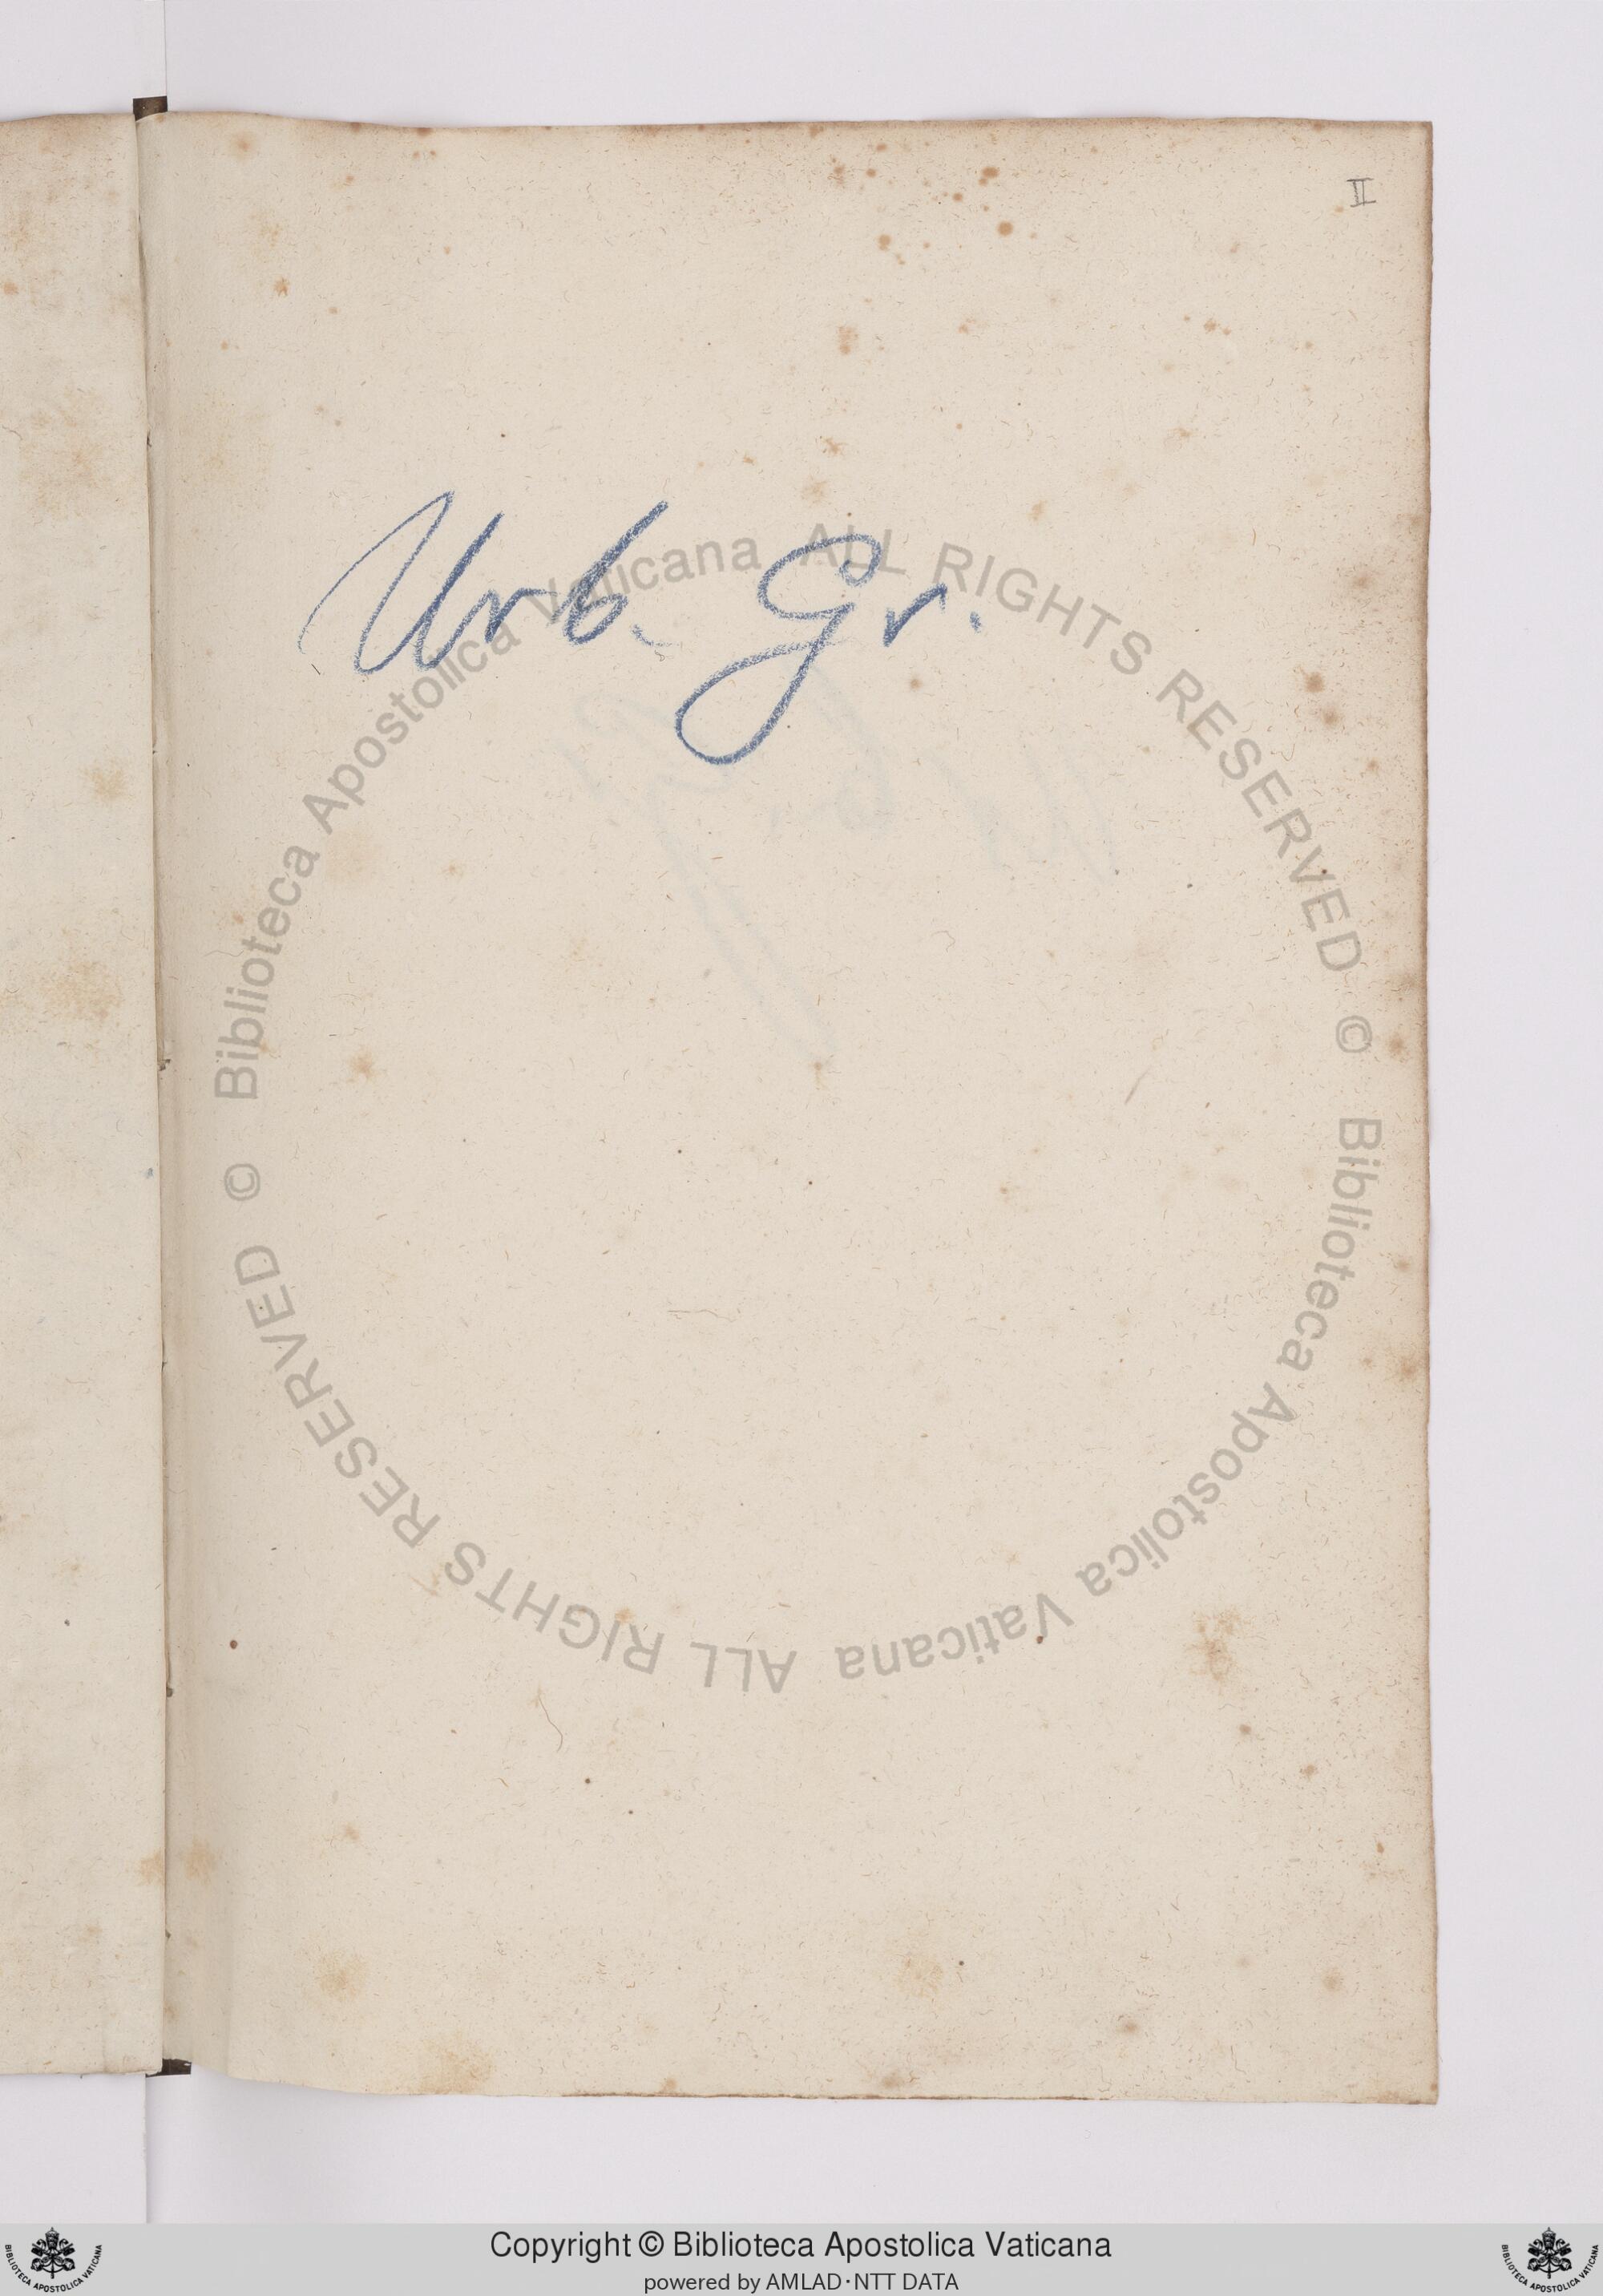 II
Urb. Gr.
© Biblioteca Apostolica Vaticana ALL RIGHTS RESERVED
© Biblioteca Apostolica Vaticana ALL RIGHTS RESERVED
Copyright © Biblioteca Apostolica Vaticana
powered by AMLAD·NTT DATA
BIBLIOTECA APOSTOLICA VATICANA
BIBLIOTECA APOSTOLICA VATICANA